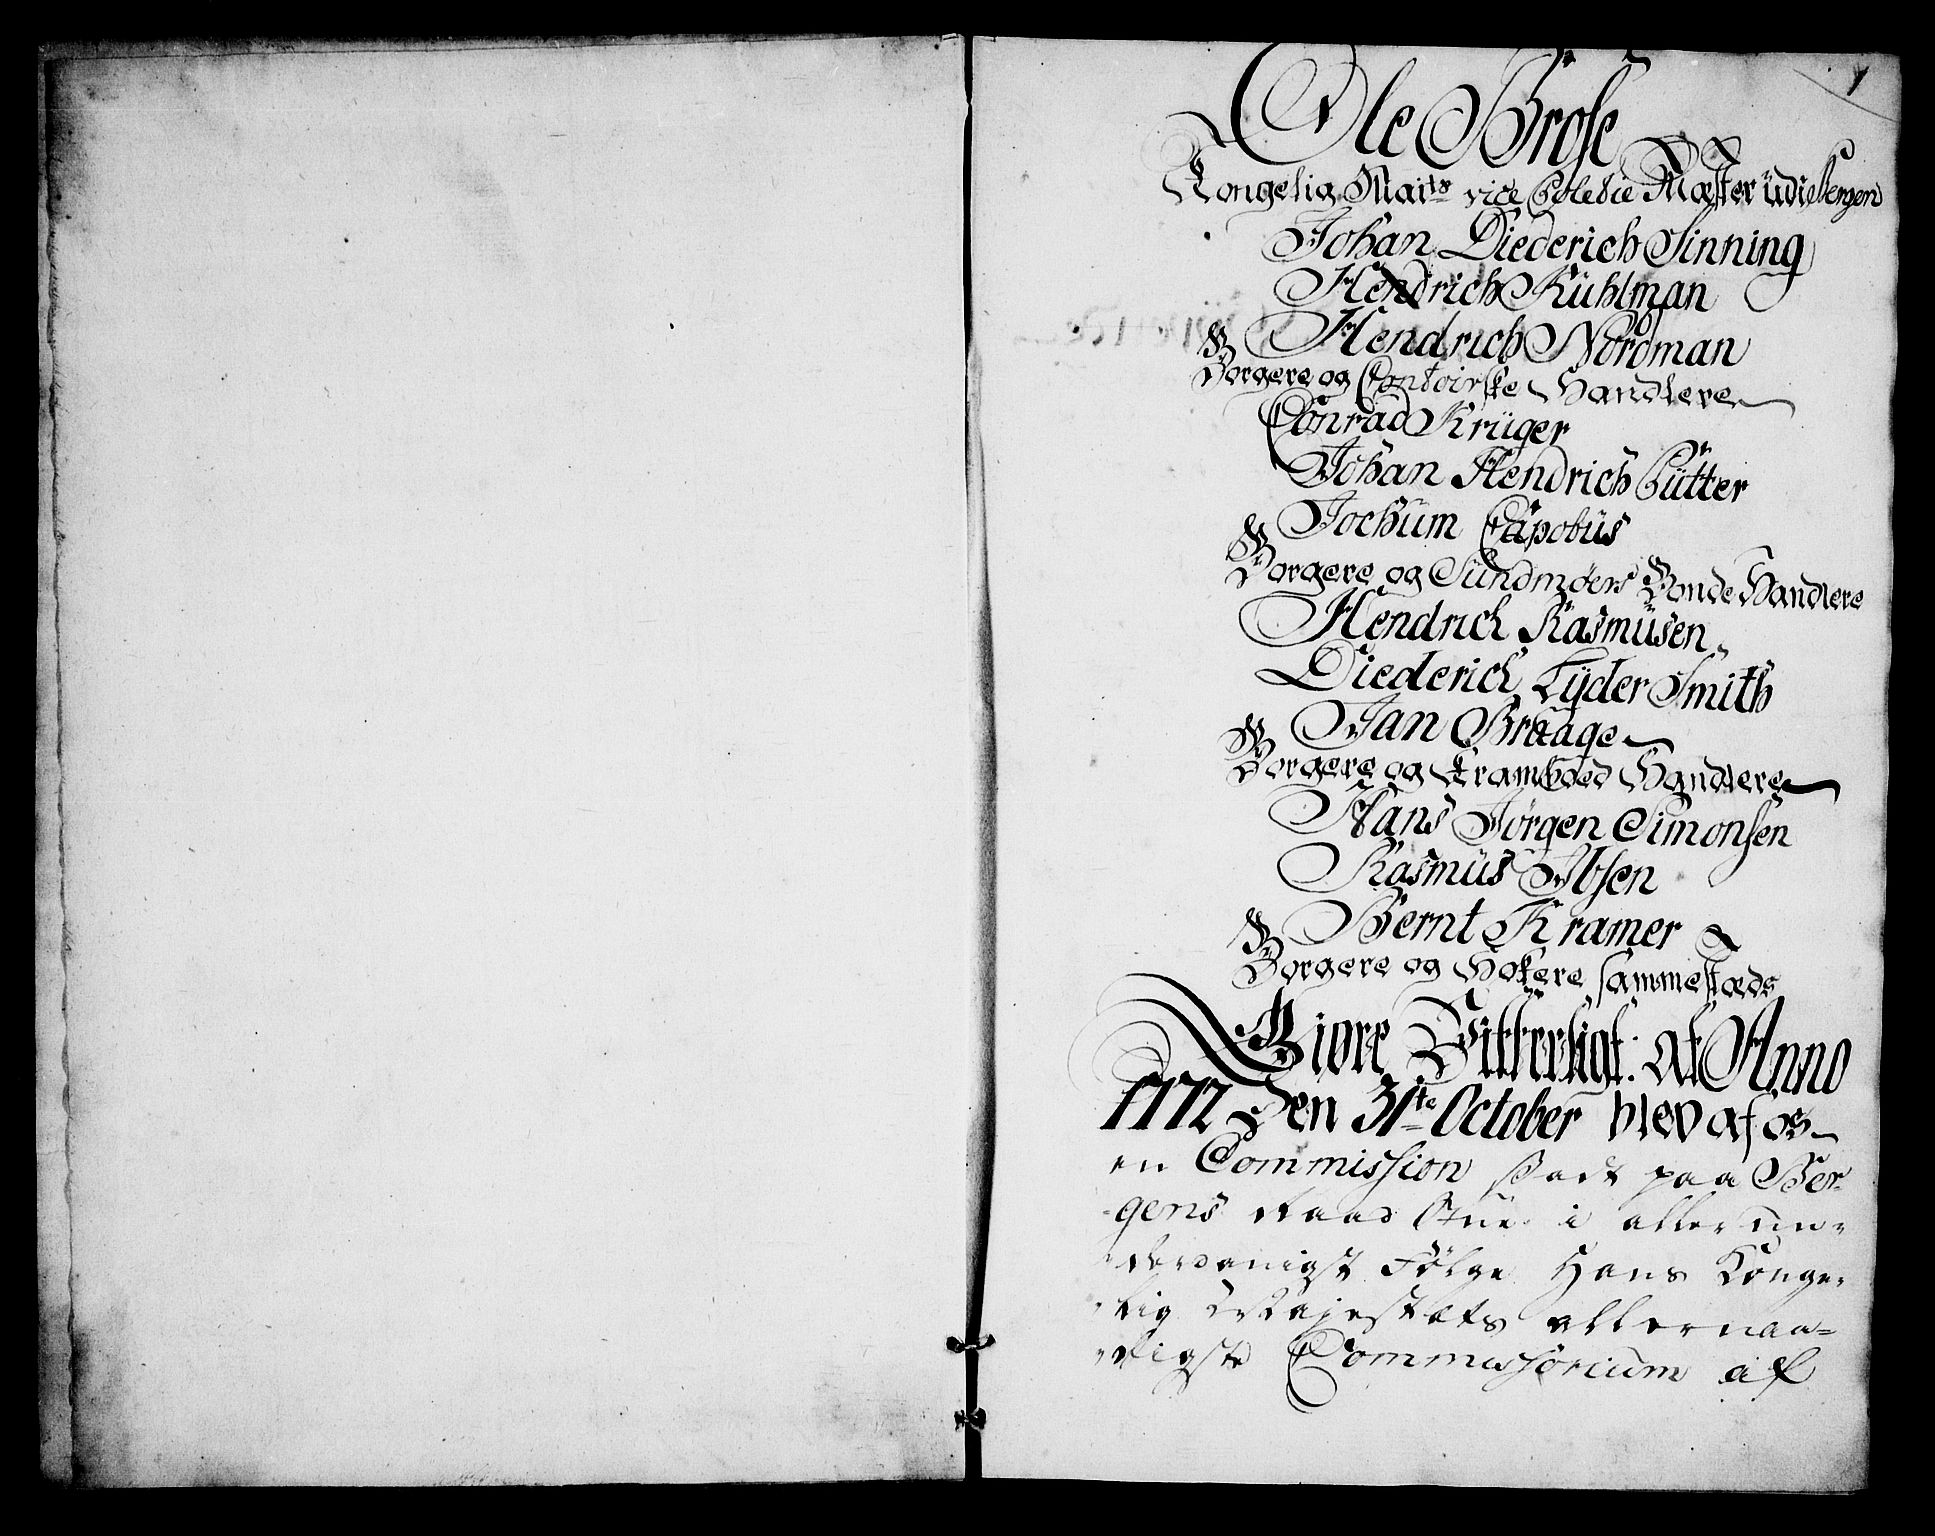 1
Ole Brose
Kongelig Maits vice Poletie Mæster udi Bergen
Johan Diederich Sinning
Hendrich Kuhlman
Hendrich Nordman
Borgere og Contoirske Handlere
Conrad Krüger
Johan Hendrich Bütter
Jochum Capobus
Borgere og Sundmøers Bonde Handlere
Hendrich Rasmusen
Diederich Lyder Smith
Jan Braage
Borgere og Kramboed Handlere
Hans Jørgen Simonsen
Rasmus Ibsen
Bernt Kramer
Borgere og Høkere sammestæds
Giøre Vitterligt: at Anno
1772 Den 31te October blev af os
en Commission sadt paa Ber-
gens Raad Stue i aller un-
derdanigst Følge Hans Konge-
lig Majestæts allernaa-
digste Commissorium af